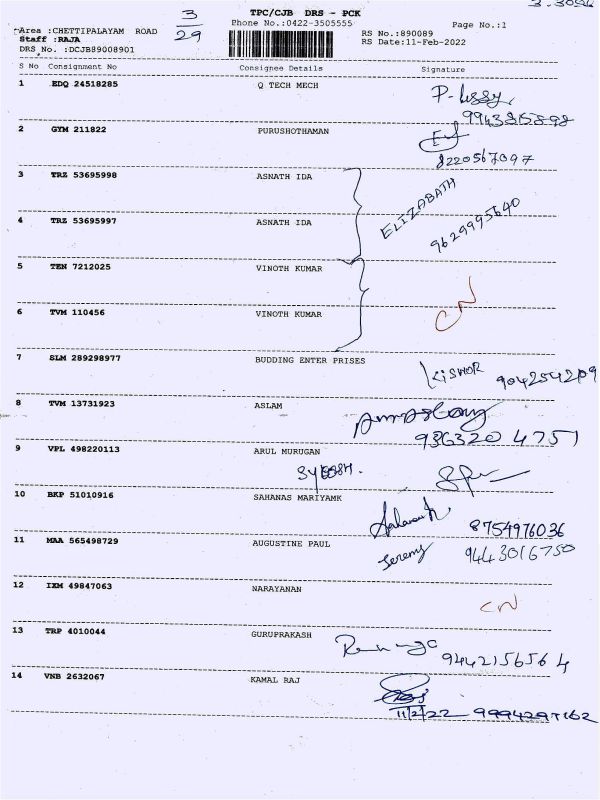 TPC/CJB DRS - PCK
3/29
Phone No.:0422-3505555
Page No.:1
Area :CHETTIPALAYAM ROAD
RS No.:890089
Staff :RAJA
RS Date:11-Feb-2022
DRS No. :DCJB89008901
S No Consignment No Consignee Details Signature
1 EDQ 24518285 Q TECH MECH
9943815898
2 GYM 211822 PURUSHOTHAMAN
8220567097
3 TRZ 53695998 ASNATH IDA
ELIZABATH
9629995640
4 TRZ 53695997 ASNATH IDA
5 TEN 7212025 VINOTH KUMAR
CN
6 TVM 110456 VINOTH KUMAR
7 SLM 289298977 BUDDING ENTER PRISES
KISHOR 9042542209
8 TVM 13731923 ASLAM
9363204751
9 VPL 498220113 ARUL MURUGAN
10 BKP 51010916 SAHANAS MARIYAMK
8754976036
11 MAA 565498729 AUGUSTINE PAUL
Jeremy 9443016750
12 IXM 49847063 NARAYANAN
CN
13 TRP 4010044 GURUPRAKASH
9442156564
14 VNB 2632067 KAMAL RAJ
11/2/22 9994297162